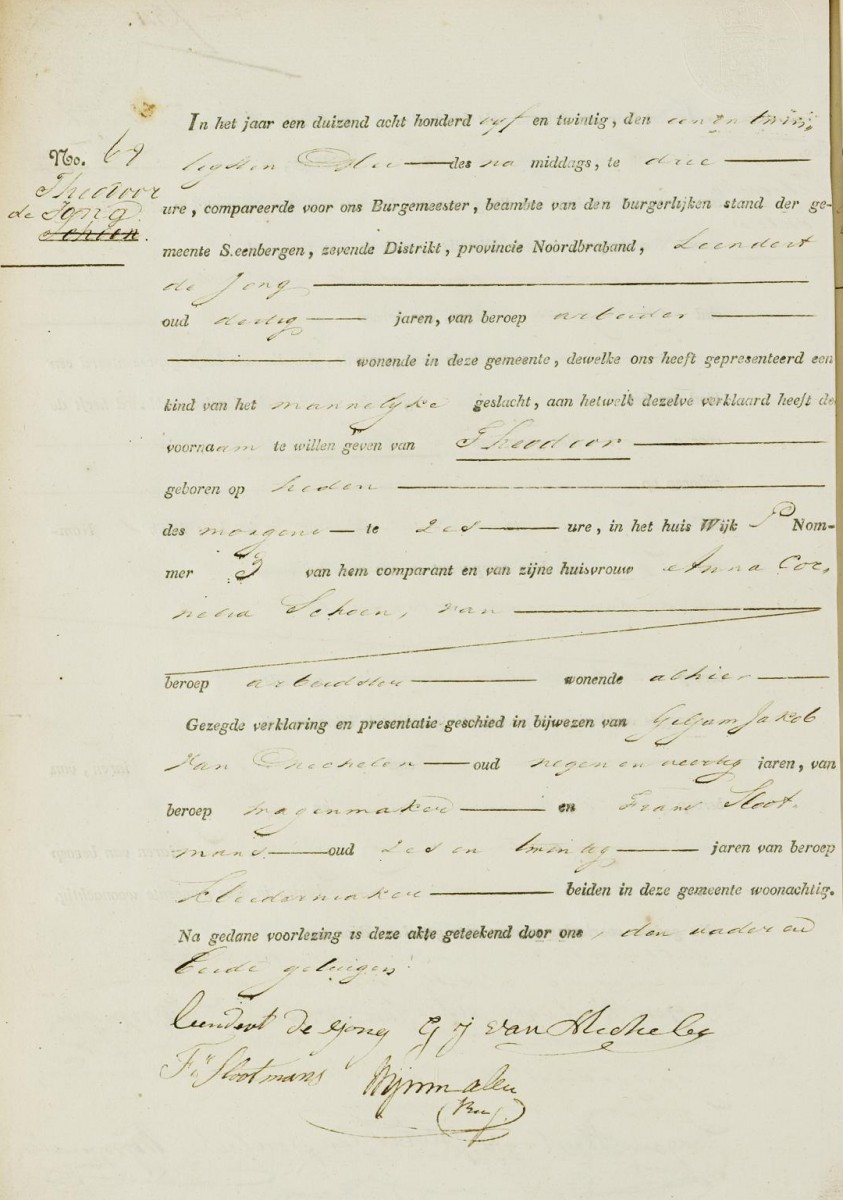 No. 69
Theodoor
de Jong
Schoen.
In het jaar een duizend acht honderd vyf en twintig, den een en twin-
tigsten Mei des na middags, te drie
ure, compareerde voor ons Burgemeester, beambte van den burgerlijken stand der ge-
meente S.eenbergen, zevende Distrikt, provincie Noordbraband, Leendert
de Jong
oud dertig jaren, van beroep arbeider
wonende in deze gemeente, dewelke ons heeft gepresenteerd een
kind van het mannelyke geslacht, aan hetwelk dezelve verklaard heeft de
voornaam te willen geven van Theodoor
geboren op heden
des morgens te zes ure, in het huis Wijk P Nom-
mer 3 van hem comparant en van zijne huisvrouw Anna Cor-
nelia Schoen, van
beroep arbeidster wonende alhier
Gezegde verklaring en presentatie geschied in bijwezen van Jakob
van Mechelen oud negen en veertig jaren, van
beroep wagenmaker en Frans Sloot-
mans oud zes en twintig jaren van beroep
kleedermaker beiden in deze gemeente woonachtig.
Na gedane voorlezing is deze akte geteekend door ons, den vader en
beide getuigen.
leendert de Jong G J van Mechelen
Fs Slootmans